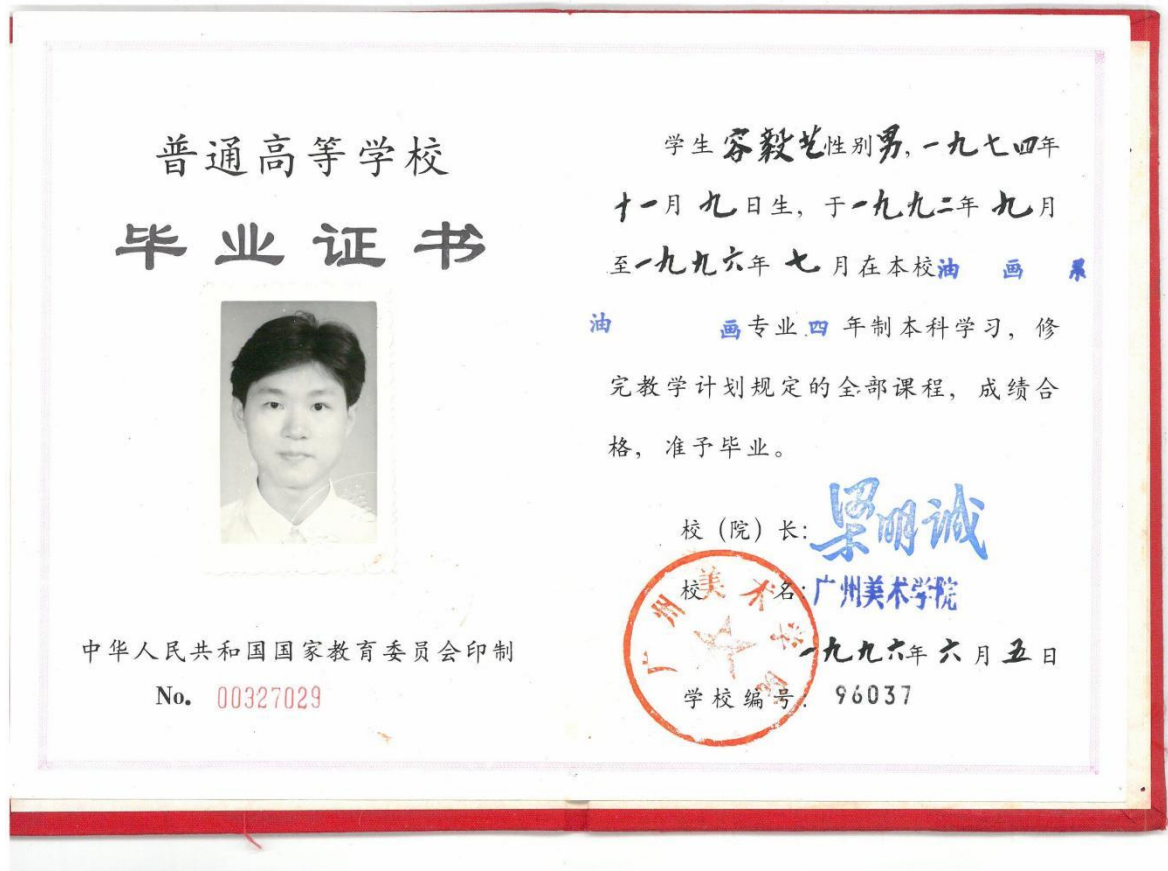 普通高等学校
毕业证书
中华人民共和国国家教育委员会印制
No. 00327029
学生容毅艺性别男,一九七四年
十一月九日生,于一九九二年九月
至一九九六年七月在本校油画系
油画专业四年制本科学习,修
完教学计划规定的全部课程,成绩合
格,准予毕业。
校(院)长:梁明诚
校名:广州美术学院
一九九六年六月五日
学校编号:96037
广州美术学院